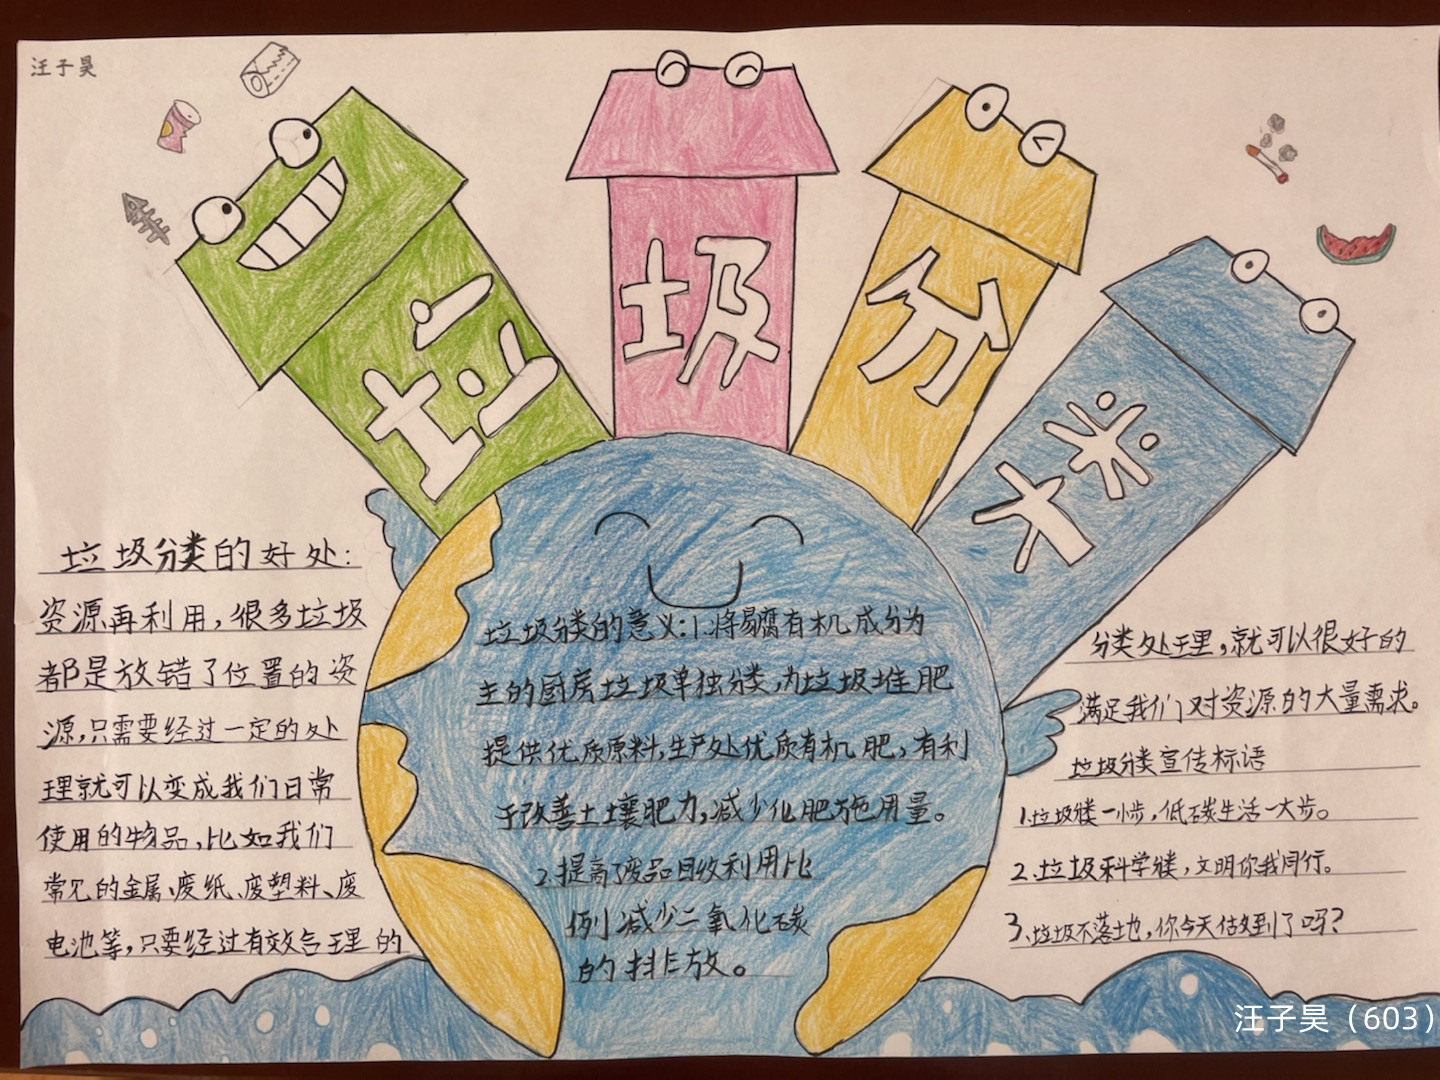 汪子昊
垃
圾
分
类
垃圾分类的好处:
资源再利用,很多垃圾
都是放错了位置的资
源,只需要经过一定的处
理就可以变成我们日常
使用的物品,比如我们
常见的金属、废纸、废塑料、废
电池等,只要经过有效合理的
垃圾分类的意义:1.将易腐有机成分为
主的厨房垃圾单独分类,为垃圾堆肥
提供优质原料,生产处优质有机肥,有利
于改善土壤肥力,减少化肥施用量。
2.提高了废品回收利用比
例减少二氧化碳
的排放。
分类处理,就可以很好的
满足我们对资源的大量需求。
垃圾分类宣传标语
1.垃圾一小步,低碳生活一大步。
2.垃圾科学,文明你我同行。
3.垃圾不落地,你今天做到了吗?
汪子昊(603)